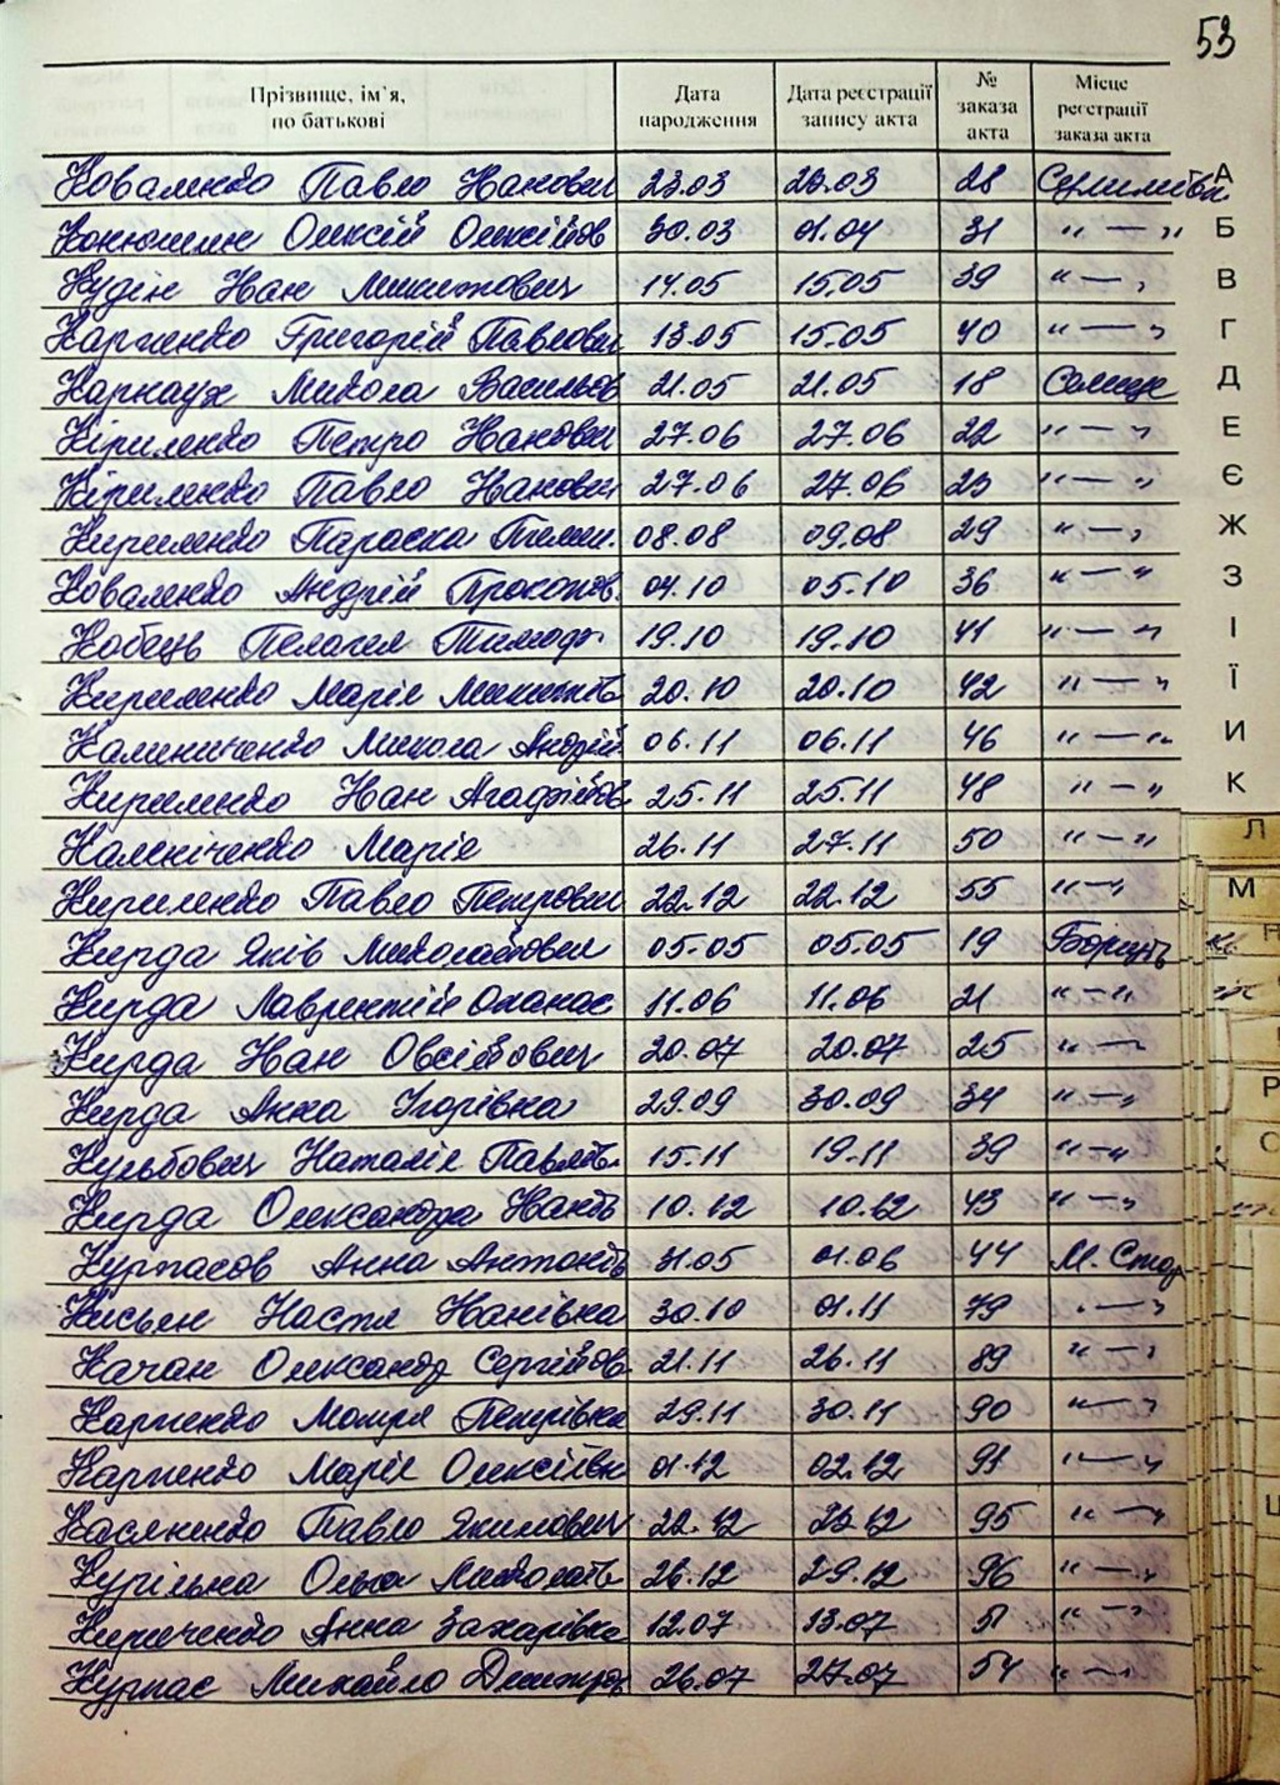 53
Прізвище, ім`я, по батькові
Дата народження
Дата реєстрації запису акта
№ заказа акта
Місце реєстрації заказа акта
Коваленко Павло Іванович 23.03 28 А
Олексій Олексійов 30.03 01.04 31 " — " Б
Кудін Іван Микитович 14.05 15.05 39 " — " В
Карпенко Григорій Павлович 13.05 15.05 40 " — " Г
Карнаух Микола Васильов 21.05 21.05 18 Селище Д
Кіриленко Петро Іванович 27.06 27.06 22 " — " Е
Кіриленко Павло Іванович 27.06 27.06 23 " — " Є
Кириленко Параска 08.08 09.08 29 " — " Ж
Коваленко Андрій Прокопов. 04.10 05.10 36 " — " З
Кобець Пелагея Тимоф. 19.10 19.10 41 " — " І
Кириленко Марія Микитів 20.10 20.10 42 " — " Ї
Микола Андрій 06.11 06.11 46 " — " И
Кириленко Іван Агафійов 25.11 25.11 48 " — " К
Каленіченко Марія 26.11 27.11 50 " — " Л
Кириленко Павло Петрович 22.12 22.12 55 " — " М
Кирда Яків Миколайович 05.05 05.05 19 Н
Кирда Лаврентій Опанас 11.06 11.06 21 " — "
Кирда Іван Овсійович 20.07 20.07 25 " — "
Кирда Анна Ігорівна 29.09 30.09 34 " — " Р
Кульбович Наталія Павлів. 15.11 19.11 39 " — " С
Кирда Олександра Іванів 10.12 10.12 43 " — "
Анна Антонів 31.05 01.06 44 М. Стар
Настя Іванівна 30.10 01.11 79 " — "
Качан Олександр Сергійов. 21.11 26.11 89 " — "
Карпенко Мотря Петрівна 29.11 30.11 90 " — "
Карпенко Марія Олексіївн 01.12 02.12 91 " — "
Касяненко Павло Якимович 22.12 23.12 95 " — " Ц
Ольга Миколаїв 26.12 29.12 96 " — "
Кириченко Анна Захарівна 12.07 13.07 51 " — "
Курпас Михайло Дмитров 26.07 27.07 54 " — "